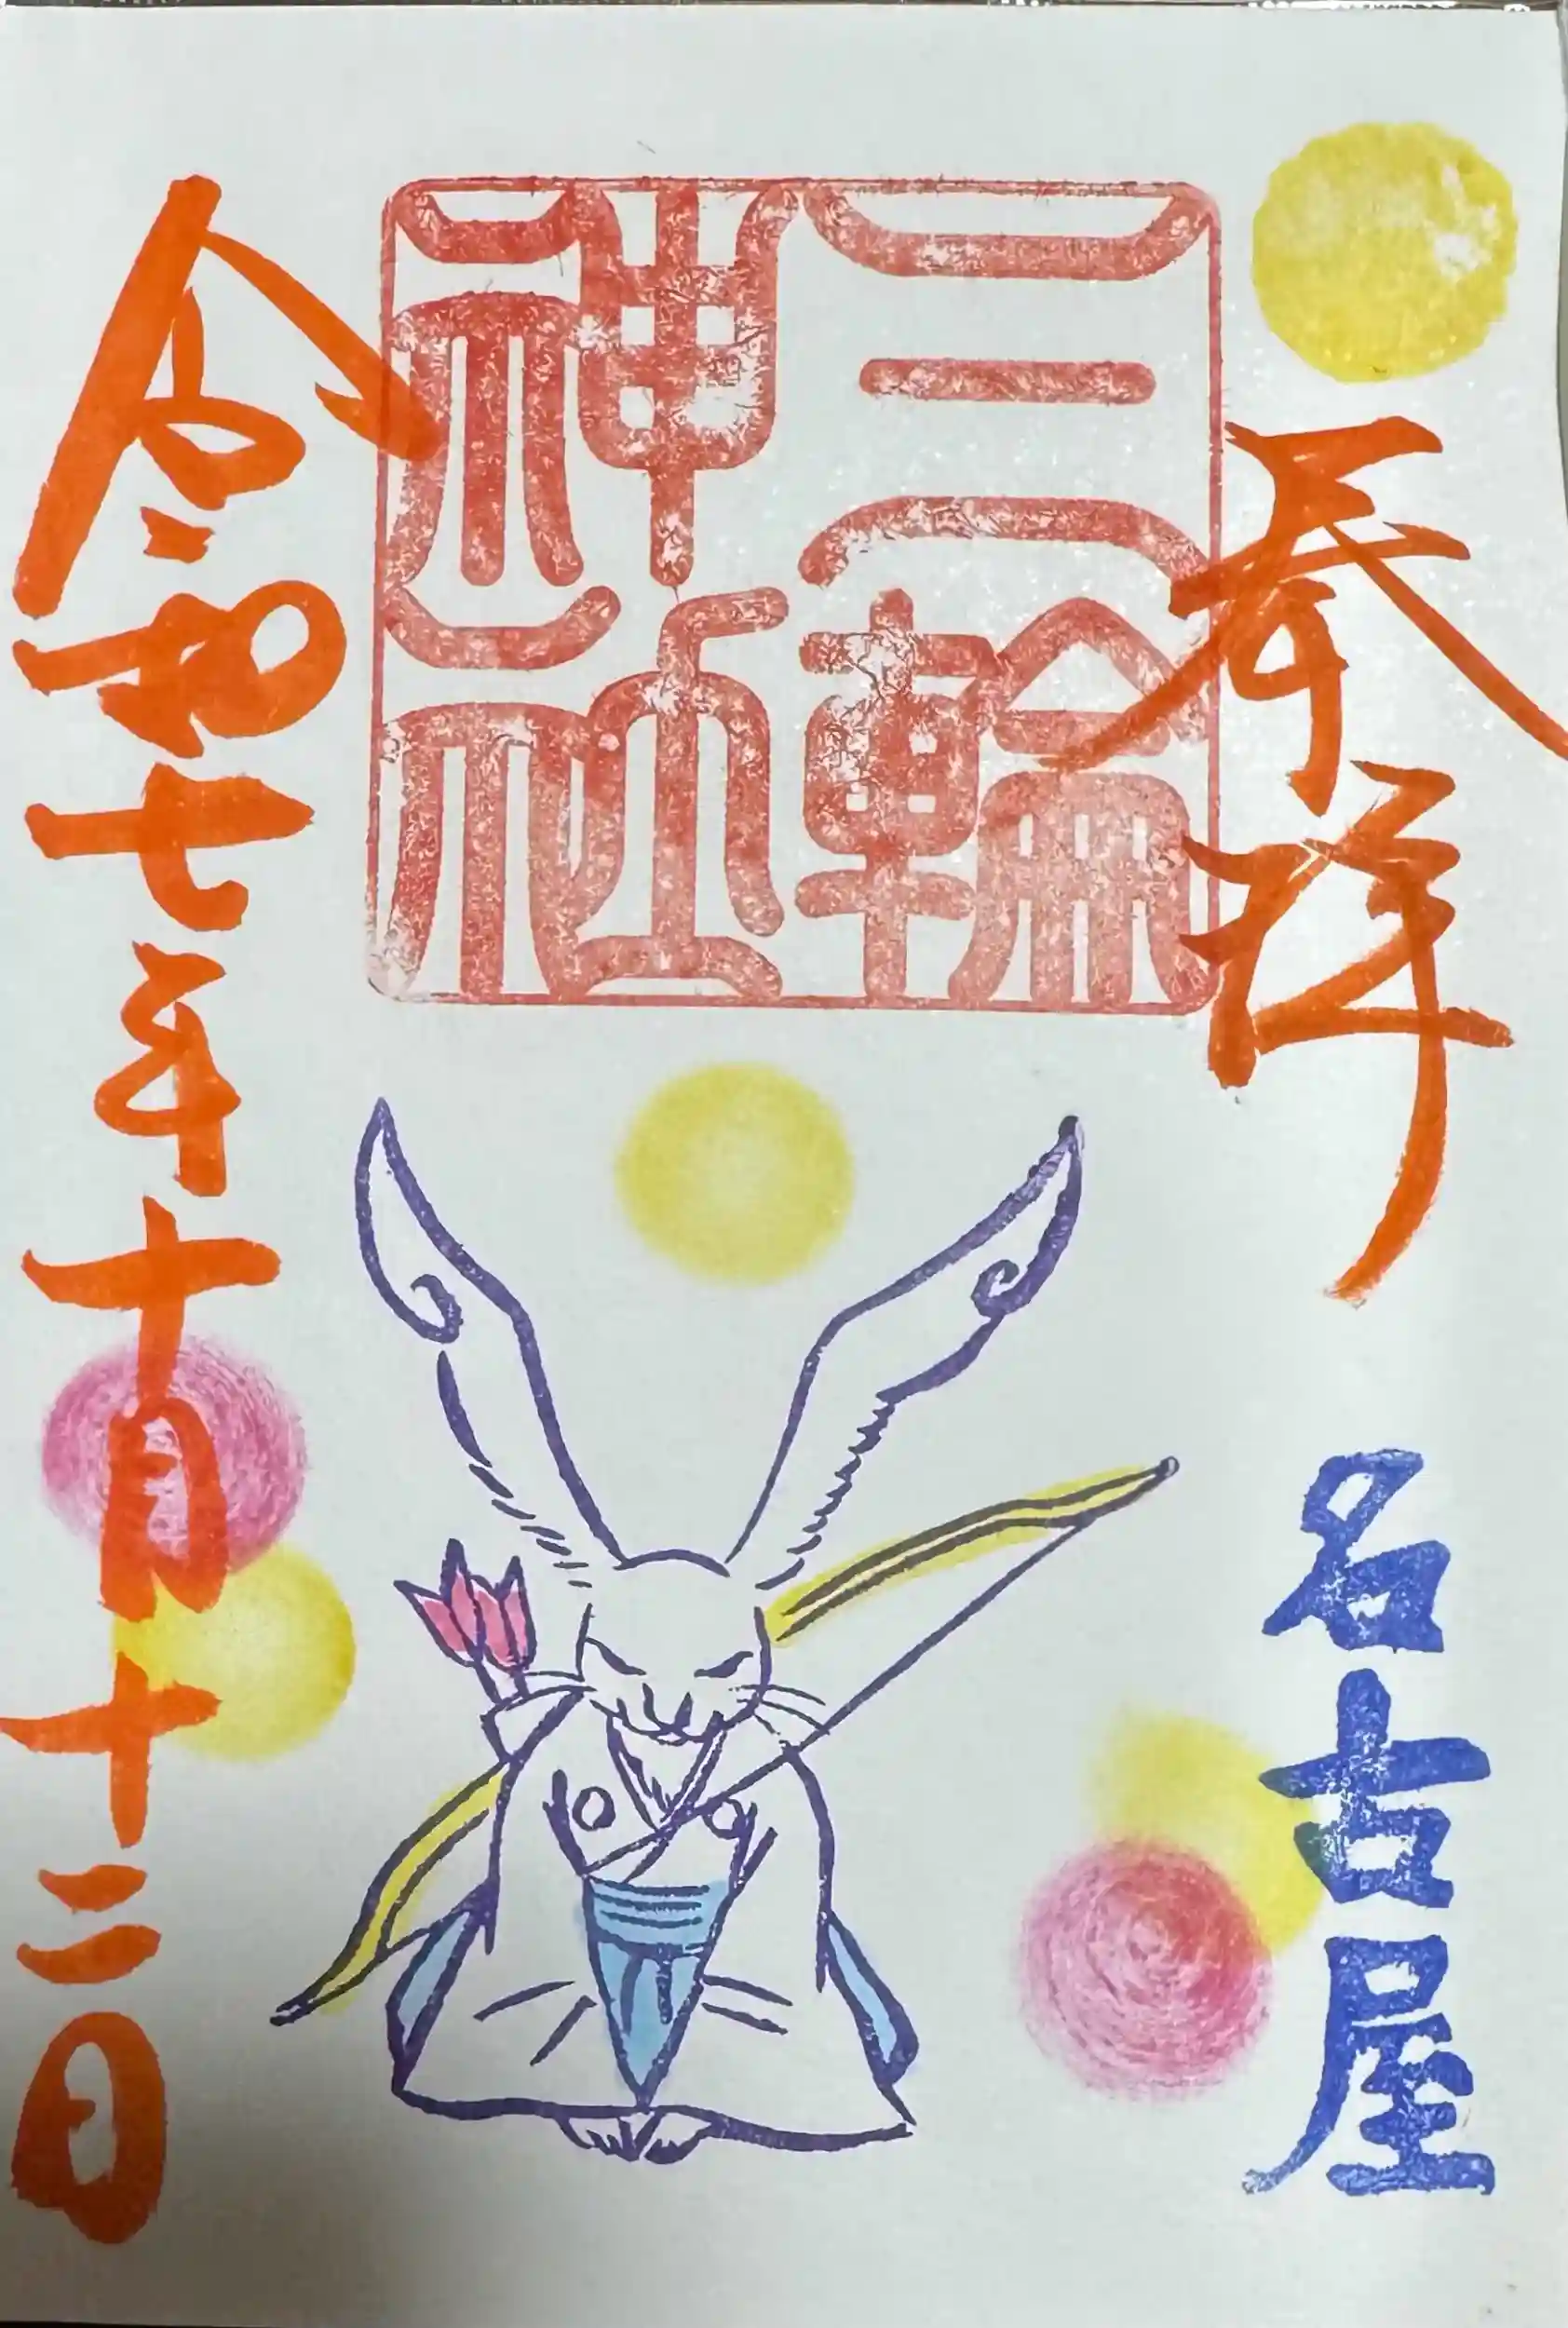 奉拝
名古屋
三輪
神社
令和七年十月十二日